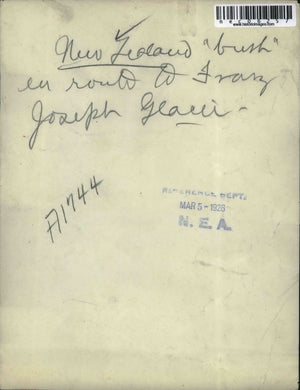 New Zealand "bush"
en route to Franz
Joseph Glacier -
A1744
REFERENCE DEPT.
MAR 5 - 1928
N. E. A.